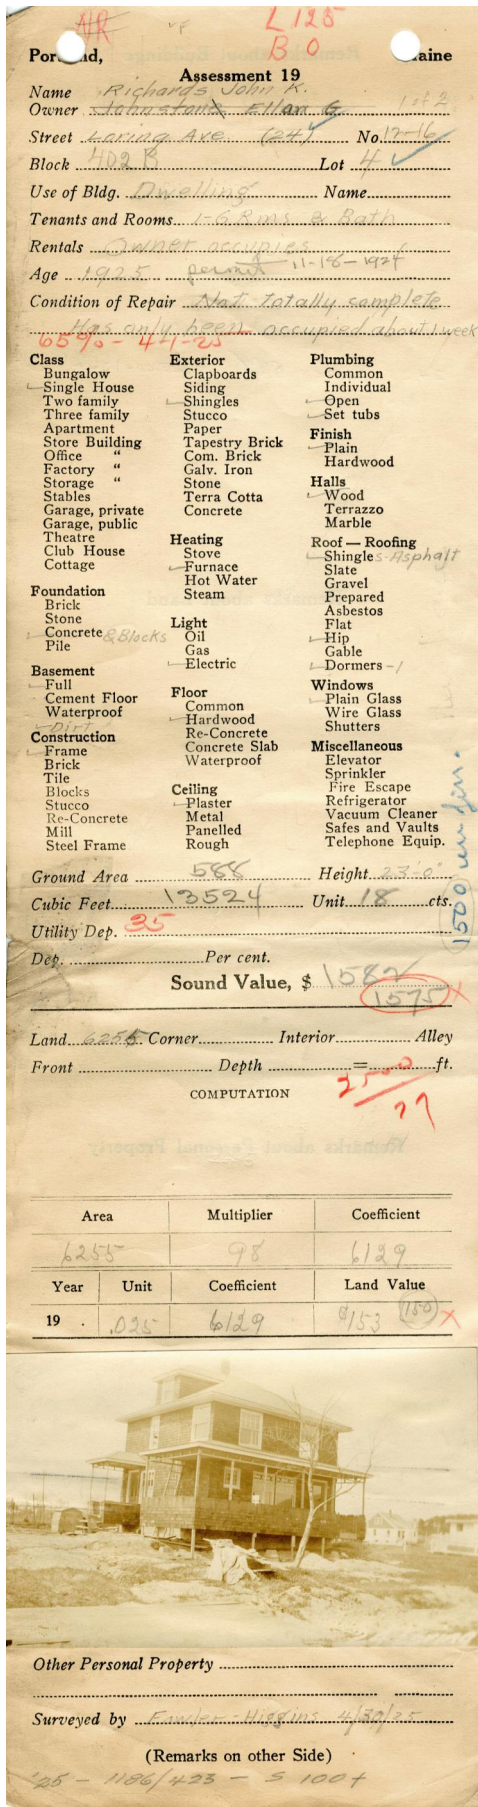 NR
L 125
B 0
Portland, Maine
Assessment 19
Name Richards John K.
Owner Johnstone Ellan G. 1 of 2
Street Loring Ave. (24) No. 12-16
Block 402 B Lot 4
Use of Bldg. Dwelling Name
Tenants and Rooms 1-6 Rms & Bath
Rentals Owner occupies
Age 1925 permit 11-18-1924
Condition of Repair Not totally complete
Has only been occupied about 1 week
65% - 4-1-25
Class
Bungalow
Single House
Two family
Three family
Apartment
Store Building
Office "
Factory "
Storage "
Stables
Garage, private
Garage, public
Theatre
Club House
Cottage
Foundation
Brick
Stone
Concrete & Blocks
Pile
Basement
Full
Cement Floor
Waterproof
Dirt
Construction
Frame
Brick
Tile
Blocks
Stucco
Re-Concrete
Mill
Steel Frame
Exterior
Clapboards
Siding
Shingles
Stucco
Paper
Tapestry Brick
Com. Brick
Galv. Iron
Stone
Terra Cotta
Concrete
Heating
Stove
Furnace
Hot Water
Steam
Light
Oil
Gas
Electric
Floor
Common
Hardwood
Re-Concrete
Concrete Slab
Waterproof
Ceiling
Plaster
Metal
Panelled
Rough
Plumbing
Common
Individual
Open
Set tubs
Finish
Plain
Hardwood
Halls
Wood
Terrazzo
Marble
Roof — Roofing
Shingles-Asphalt
Slate
Gravel
Prepared
Asbestos
Flat
Hip
Gable
Dormers - 1
Windows
Plain Glass
Wire Glass
Shutters
Miscellaneous
Elevator
Sprinkler
Fire Escape
Refrigerator
Vacuum Cleaner
Safes and Vaults
Telephone Equip.
1500 un fin.
Ground Area 588 Height 23'-0"
Cubic Feet 13524 Unit 18 cts.
Utility Dep. 35
Dep. Per cent.
Sound Value, $ 1582
1575 X
Land 6255 Corner Interior Alley
Front Depth = ft.
2500
27
COMPUTATION
Area Multiplier Coefficient
6255 98 6129
Year Unit Coefficient Land Value
19 . .025 6129 $153 150 X
Other Personal Property
Surveyed by Fowler-Higgins 4/30/25
(Remarks on other Side)
'25 - 1186/423 - S 100+